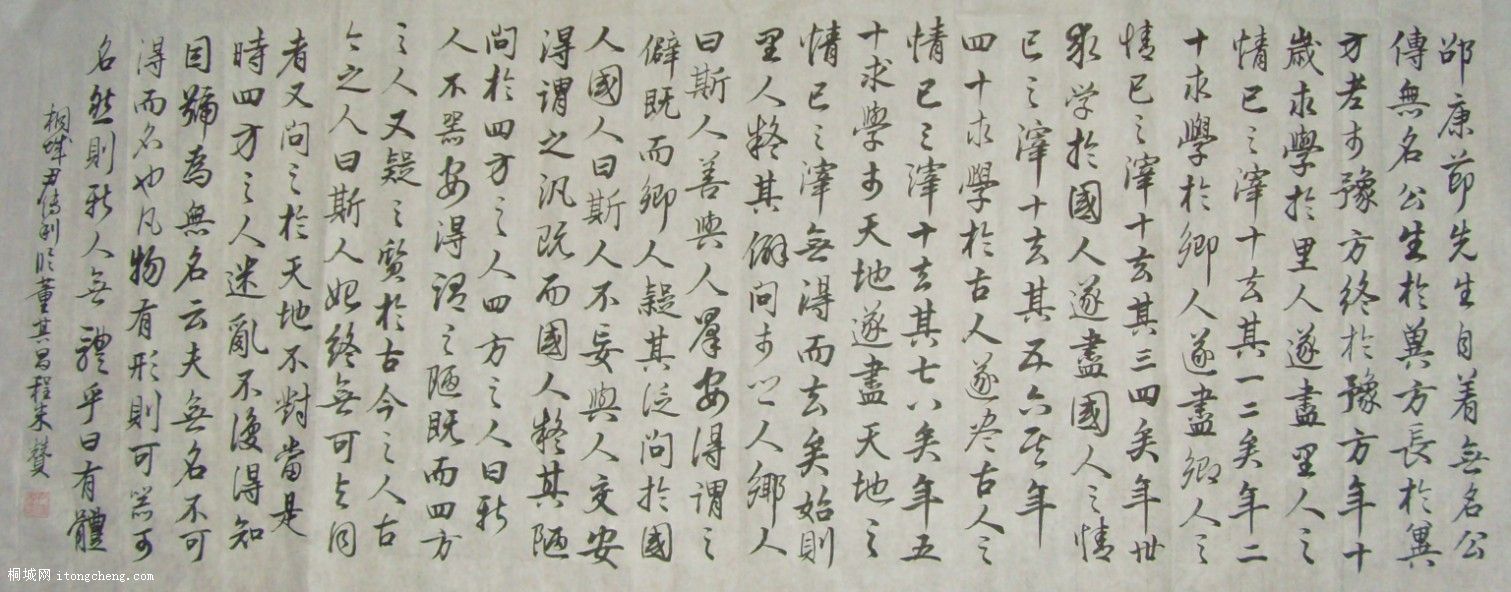 邵康節先生自着無名公
傳無名公生於冀方長於冀
方老於豫方終於豫方年十
歲求學於里人遂盡里人之
情己之滓十去其一二矣年二
十求學於鄉人遂盡鄉人之
情已之滓十去其三四矣年卅
求学於國人遂盡國人之情
已之滓十去其五六矣年
四十求學於古人遂尽古人之
情已之滓十去其七八矣年五
十求學於天地遂盡天地之
情已之滓無得而去矣始則
里人疑其僻問於人鄉人
曰斯人善與人羣安得謂之
僻既而鄉人疑其泛問於國
人國人曰斯人不妄與人交安
得謂之汎既而國人疑其陋
问於四方之人四方之人曰斯
人不器安得謂之陋既而四方
之人又疑之質於古今之人古
今之人曰斯人始終無可与同
者又问之於天地不對當是
時四方之人迷亂不復得知
因號為無名云夫無名不可
得而名也凡物有形則可器可
名然則斯人無體乎曰有體
桐城尹傳利臨董其昌程朱贊
桐城网 itongcheng.com